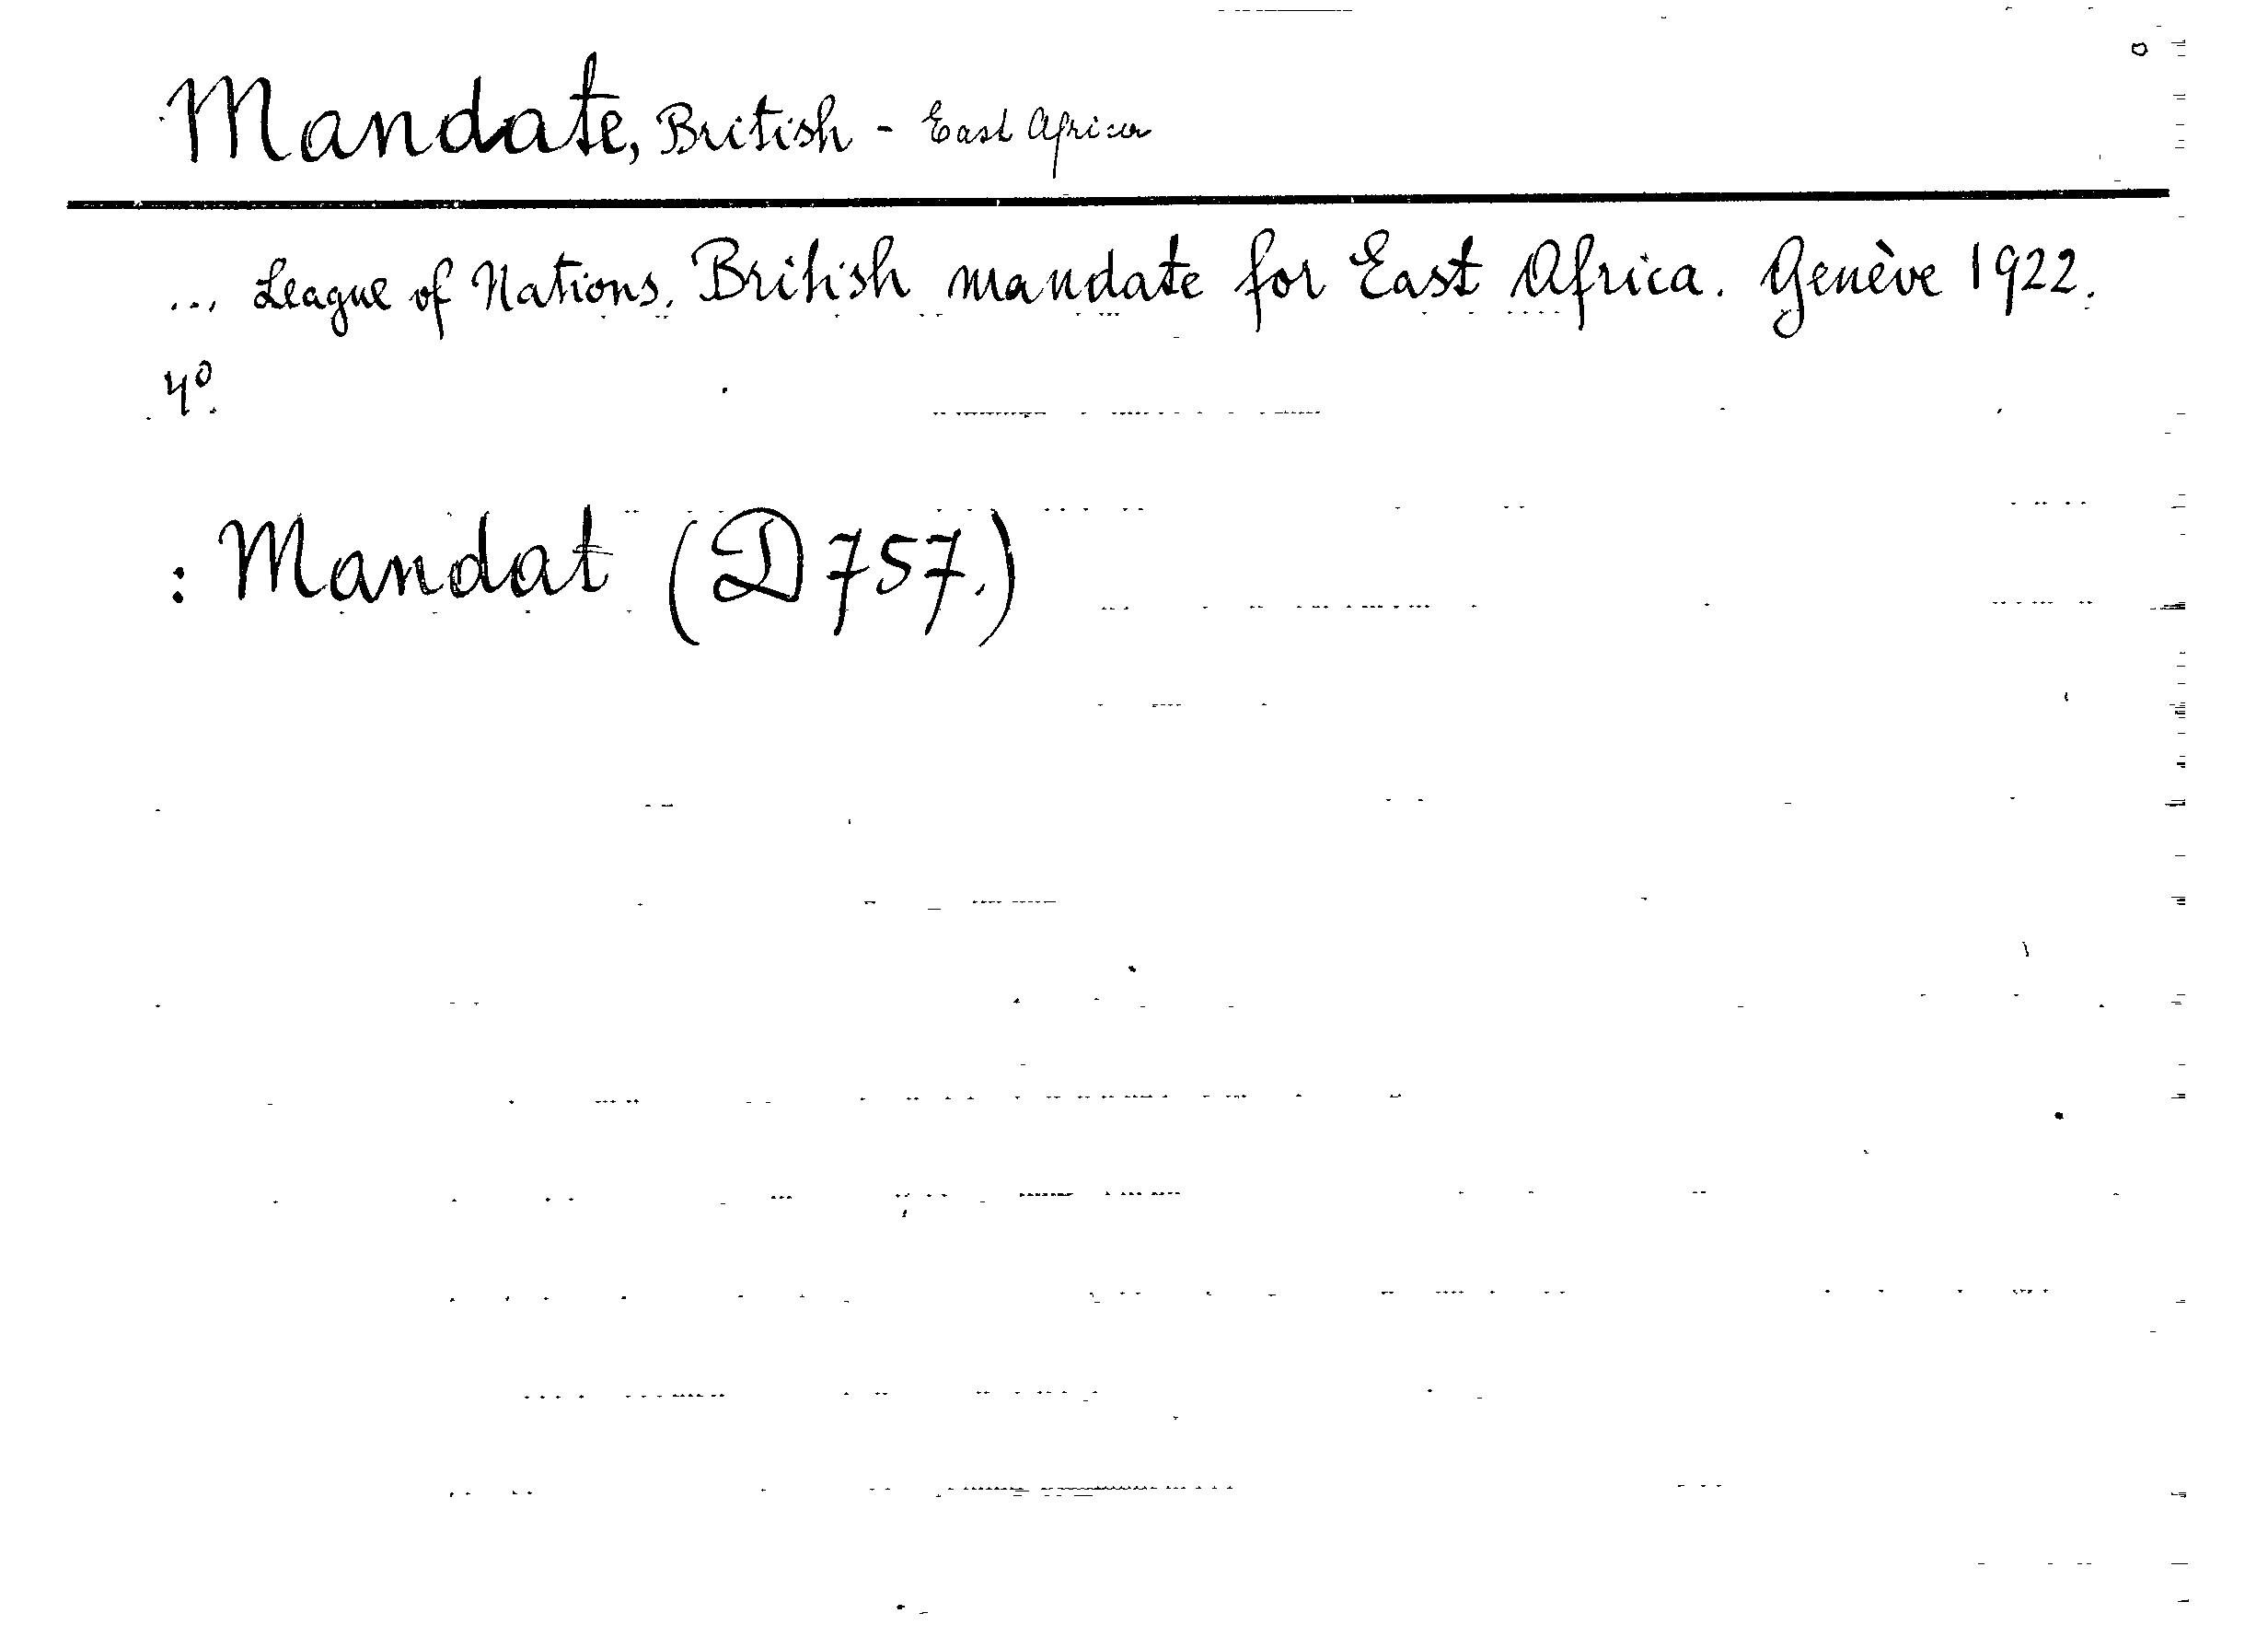 Mandate, British - East Africa
... League of Nations. British mandate for East Africa. Genève 1922.
4º.
: Mandat (D 757.)